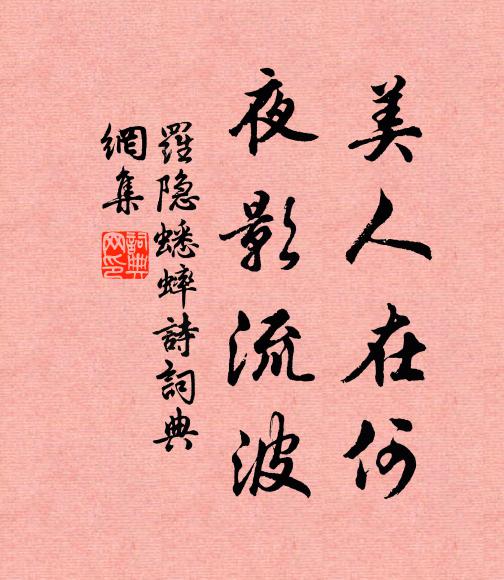 美人在何
夜影流波
羅隐蟋蟀詩詞典
網集
詞典
网印